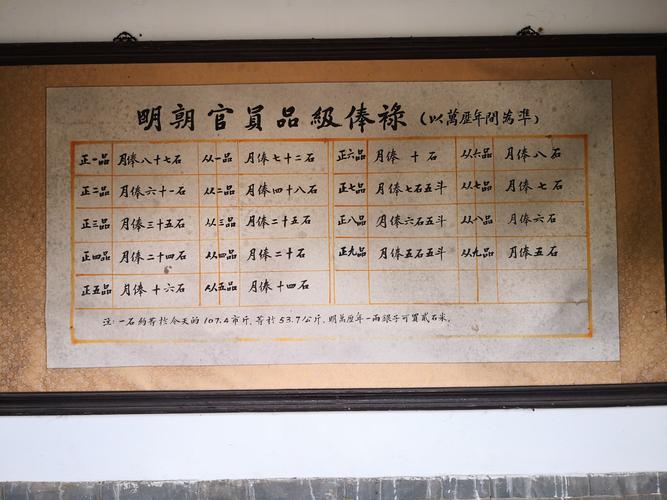 明朝官員品級俸祿（以萬歷年間為準）
正一品 月俸八十七石 从一品 月俸七十二石 正六品 月俸 十石 从六品 月俸八石
正二品 月俸六十一石 从二品 月俸四十八石 正七品 月俸七石五斗 从七品 月俸七石
正三品 月俸三十五石 从三品 月俸二十五石 正八品 月俸六石五斗 从八品 月俸六石
正四品 月俸二十四石 从四品 月俸二十石 正九品 月俸五石五斗 从九品 月俸五石
正五品 月俸十六石 从五品 月俸十四石
注：一石約等於今天的107.4市斤，等於53.7公斤，明萬歷年一兩銀子可買貳石米。